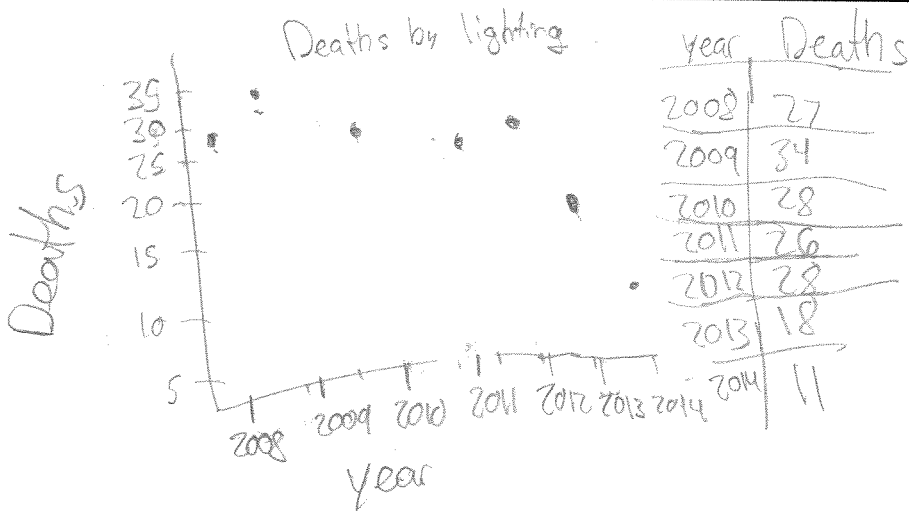 Deaths by lighting
Deaths
35
30
25
20
15
10
5
2008 2009 2010 2011 2012 2013 2014
year
year Deaths
2008 27
2009 34
2010 28
2011 26
2012 28
2013 18
2014 11